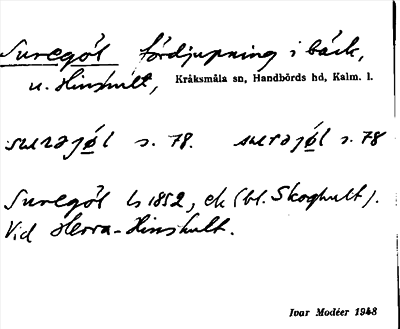 Suregöl fördjupning i bäck,
u. Hinshult, Kråksmåla sn, Handbörds hd, Kalm. l.
surəjo̲l s. 78. surəjo̲l s. 78
Suregöl ls 1852, ek (bl. Skoghult).
Vid Herra-Hinshult.
Ivar Modéer 1948